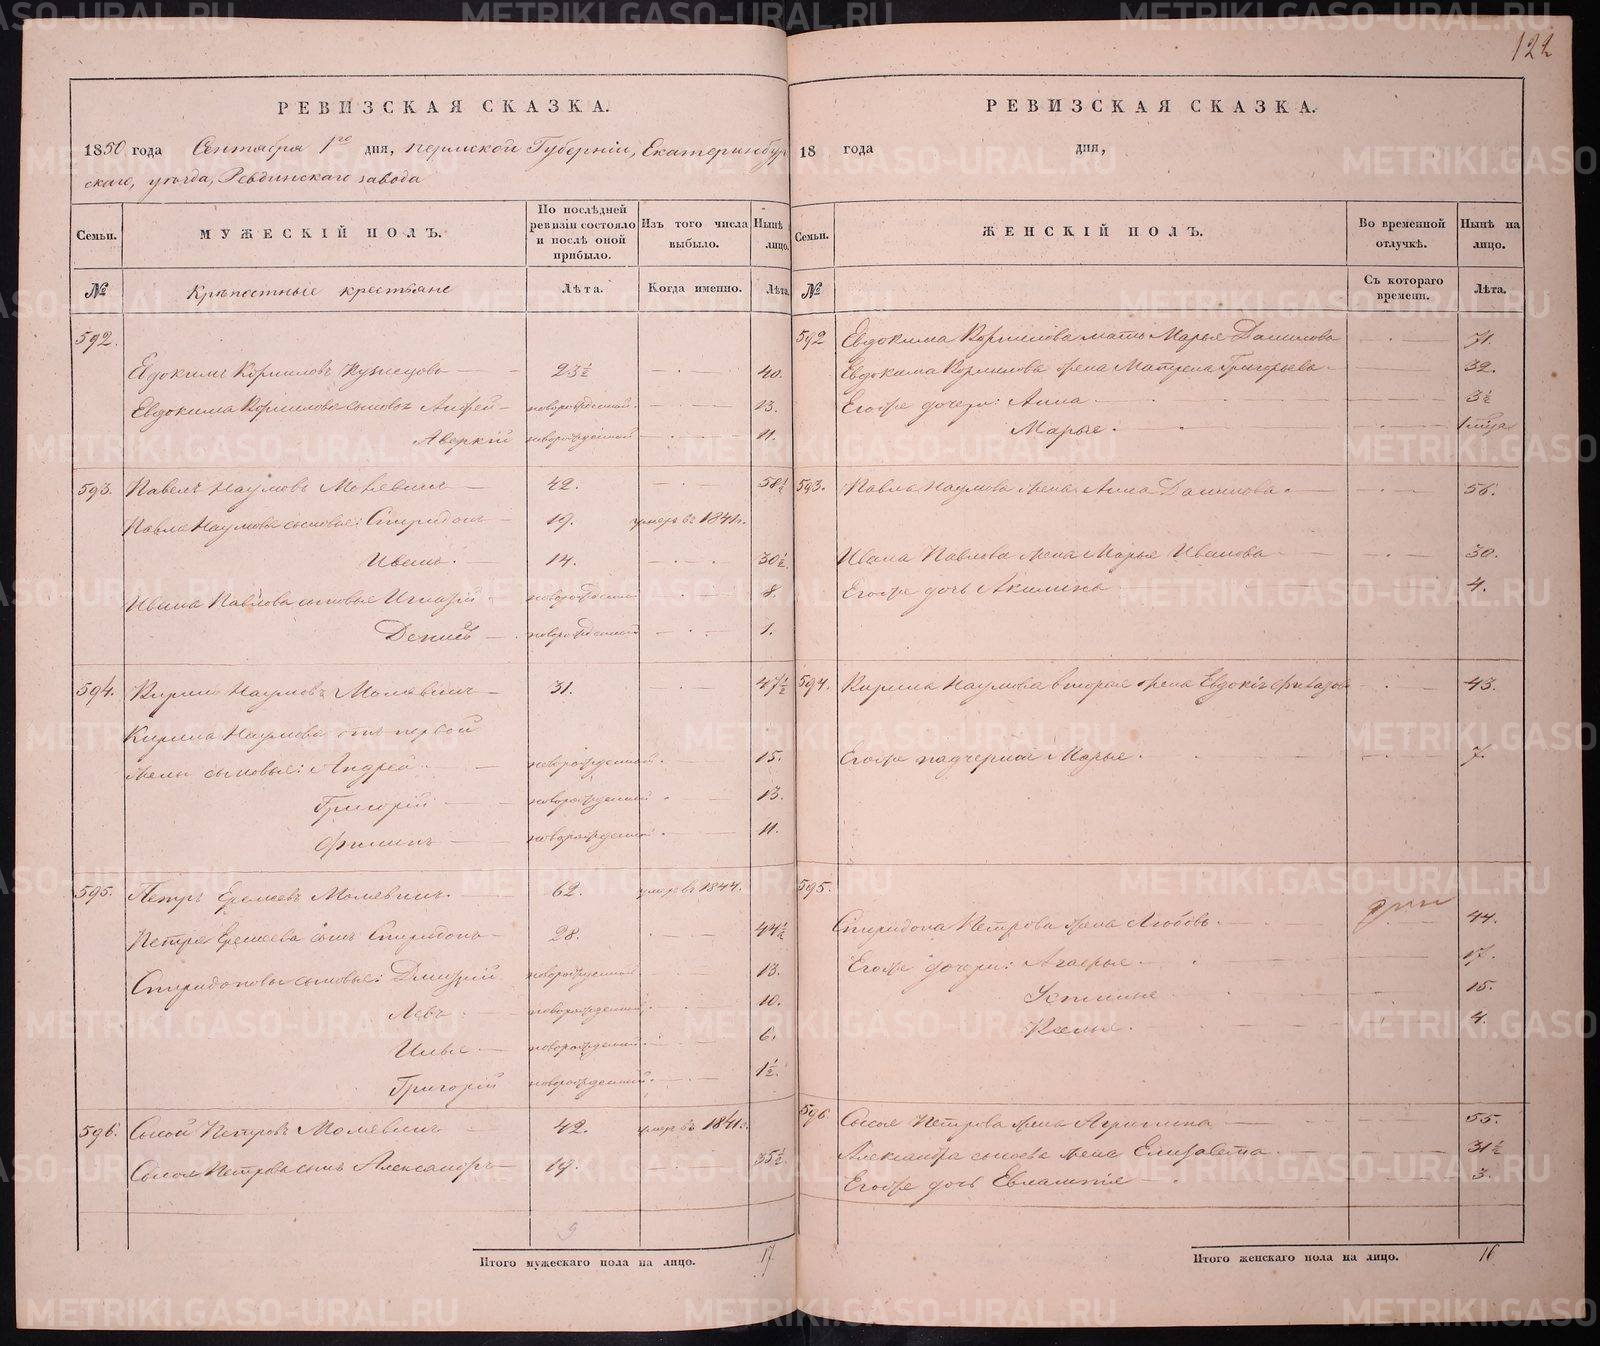 122
РЕВИЗСКАЯ СКАЗКА.
1850 года Сентября 1го дня, Пермской Губерніи, Екатеринбур
скаго, уѣзда, Ревдинскаго завода
Семьи. МУЖЕСКІЙ ПОЛЪ. По послѣдней ревизіи состояло и послѣ оной прибыло. Изъ того числа выбыло. Нынѣ на лицо.
№ Крѣпостные крестьяне Лѣта. Когда именно. Лѣта.
592.
Евдокимъ Корниловъ Кузнецовъ 23½ 40.
Евдокима Корнилова сыновья Андрей новорожденный 13.
Аверкій новорожденный 11.
593. Павелъ Наумовъ 42. 58½
Павла Наумова сыновья: Спиридонъ 19. умеръ въ 1841г.
Иванъ. 14. 30½
Ивана Павлова сыновья Игнатій новорожденный 8.
Денисъ новорожденный 1.
594. Кирило Наумовъ Молявинъ 31. 47½
Кирила Наумова отъ первой
жены сыновья: Андрей новорожденный 15.
Григорій новорожденный 13.
Филипъ новорожденный 11.
595. Петръ Еремеевъ Молявинъ. 62. умеръ въ 1844.
Петра Еремеева сынъ Спиридонъ 28. 44½
Спиридоновы сыновья: Дмитрій новорожденный 13.
Левъ новорожденный 10.
Илья новорожденный 6.
Григорій новорожденный 1½.
596. Сысой Петровъ Молявинъ 42. умеръ въ 1841г.
Сысоя Петрова сынъ Александръ 19. 35½
9
Итого мужескаго пола на лицо. 17
РЕВИЗСКАЯ СКАЗКА.
18 года дня,
Семьи. ЖЕНСКІЙ ПОЛЪ. Во временной отлучкѣ. Нынѣ на лицо.
№ Съ котораго времени. Лѣта.
592 Евдокима Корнилова мать Марья Данилова 71.
Евдокима Корнилова жена Матрена Григорьева 32.
Егоже дочери: Анна 3½
Марья 1
593. Павла Наумова жена Анна Данилова 56.
Ивана Павлова жена Марья Иванова 30.
Егоже дочь Акилина 4.
594. Кирила Наумова вторая жена Евдокія 43.
Егоже падчерица Марья. 7.
595.
Спиридона Петрова жена Любовь. 44.
Егоже дочери: Агафья 17.
Устинья 15.
4.
596 Сысоя Петрова жена Агрипина 55.
Александра Сысоева жена Елизавета 31½
Егоже дочь Евлампія 3.
Итого женскаго пола на лицо. 16
METRIKI.GASO-URAL.RU